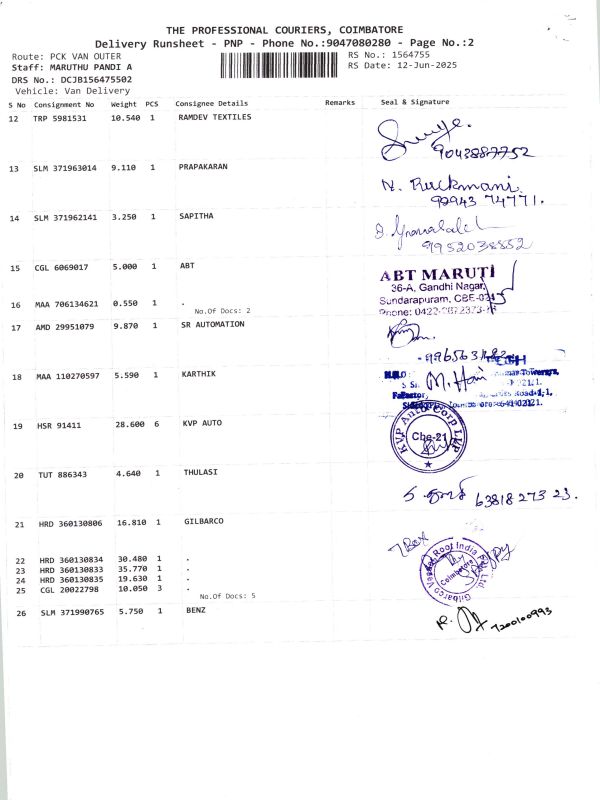 THE PROFESSIONAL COURIERS, COIMBATORE
Delivery Runsheet - PNP - Phone No.:9047080280 - Page No.:2
Route: PCK VAN OUTER
RS No.: 1564755
Staff: MARUTHU PANDI A
RS Date: 12-Jun-2025
DRS No.: DCJB156475502
Vehicle: Van Delivery
S No Consignment No Weight PCS Consignee Details Remarks Seal & Signature
12 TRP 5981531 10.540 1 RAMDEV TEXTILES
9043887752
13 SLM 371963014 9.110 1 PRAPAKARAN
N. Ruckmani
99943 74771.
14 SLM 371962141 3.250 1 SAPITHA
9952038852
15 CGL 6069017 5.000 1 ABT
ABT MARUTI
36-A, Gandhi Nagar,
Sundarapuram, CBE-
Phone:
16 MAA 706134621 0.550 1 .
No.Of Docs: 2
17 AMD 29951079 9.870 1 SR AUTOMATION
18 MAA 110270597 5.590 1 KARTHIK
M. Hari
19 HSR 91411 28.600 6 KVP AUTO
KVP Auto Corp LLP
Cbe-21
20 TUT 886343 4.640 1 THULASI
63818 273 23.
21 HRD 360130806 16.810 1 GILBARCO
7 Box
Gilbarco Veeder Root India Pvt. Ltd
Coimbatore
22 HRD 360130834 30.480 1 .
23 HRD 360130833 35.770 1 .
24 HRD 360130835 19.630 1 .
25 CGL 20022798 10.050 3 .
No.Of Docs: 5
26 SLM 371990765 5.750 1 BENZ
7200100993